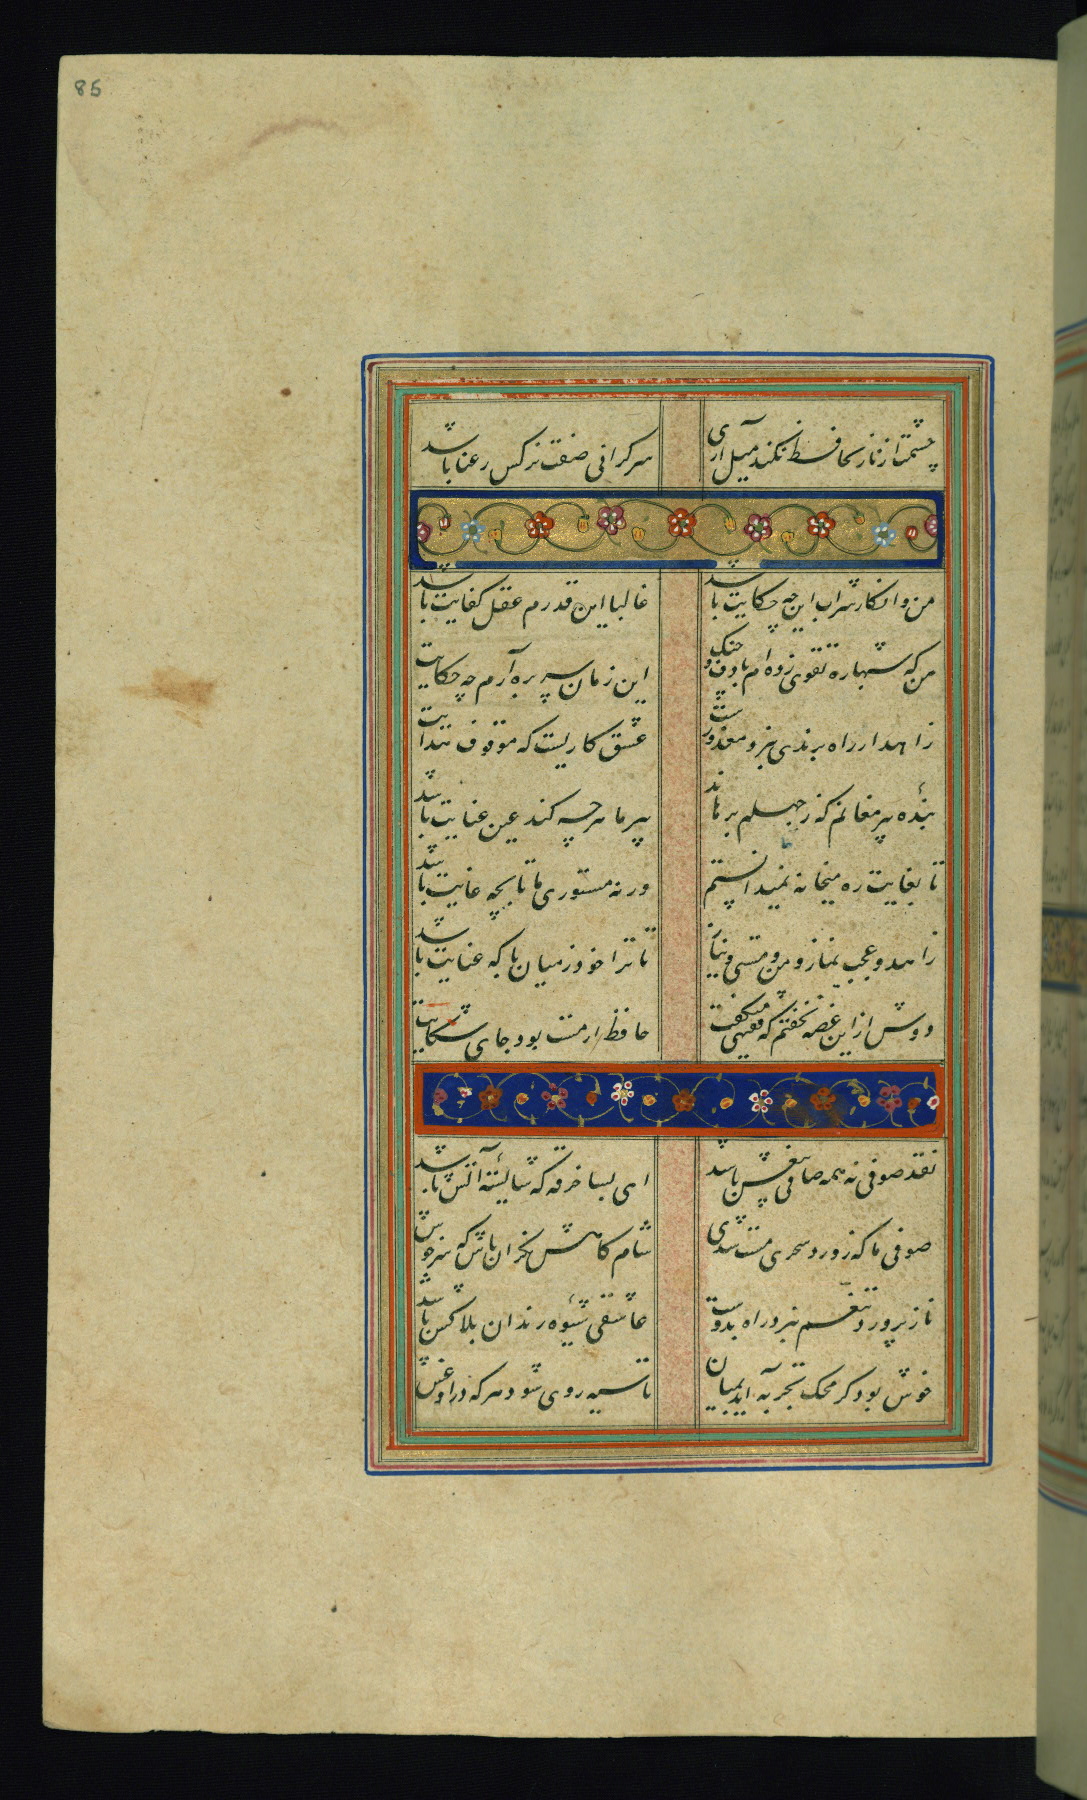 85
چشمت از ناز بحافظ نکند میل آری
سرکرانی صفت نرکس رعنا باشد
من و انکار شراب این چه حکایت باشد
غالبا این قدرم عقل کفایت باشد
من که شبها ره تقوی زده ام با دف و چنک
این زمان سر بره آرم چه حکایت
زاهد ار راه برندی نبرد معذورست
عشق کاریست که موقوف هدایت
بنده پیر مغانم که ز جهلم برهاند
پیر ما هر چه کند عین عنایت باشد
تا بغایت ره میخانه نمیدانستم
ورنه مستوری ما تا بچه غایت باشد
زاهد و عجب و نماز و من و مستی و نیاز
تا ترا خود ز میان با که عنایت باشد
دوش ازین غصه نخفتم که فقیهی میکفت
حافظ ار مست بود جای شکایت
نقد صوفی نه همه صافی بیغش باشد
ای بسا خرقه که شایسته آتش باشد
صوفی ما که ز ورد سحری مست شدی
شام کاهش نکران باش که سرخوش
ناز پرورد تنعم نبرد راه بدوست
عاشقی شیوه رندان بلاکش باشد
خوش بود کر محک تجربه آید بمیان
تا سیه روی شود هر که در او غش